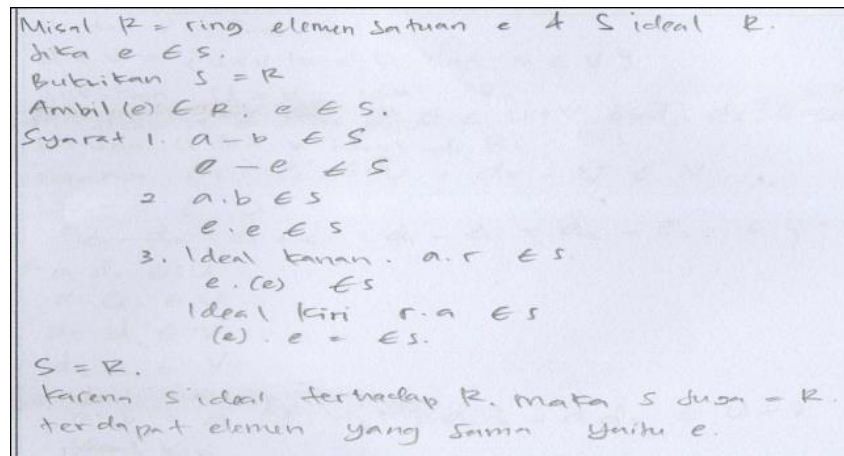 Misal R = ring elemen satuan e & S ideal R.
Jika e ∈ S.
Buktikan S = R
Ambil (e) ∈ R. e ∈ S.
Syarat 1. a - b ∈ S
e - e ∈ S
2 a.b ∈ S
e.e ∈ S
3. Ideal kanan. a.r ∈ S
e.(e) ∈ S
Ideal kiri r.a ∈ S
(e).e = ∈ S.
S = R.
Karena S ideal terhadap R. maka S juga = R.
terdapat elemen yang sama yaitu e.